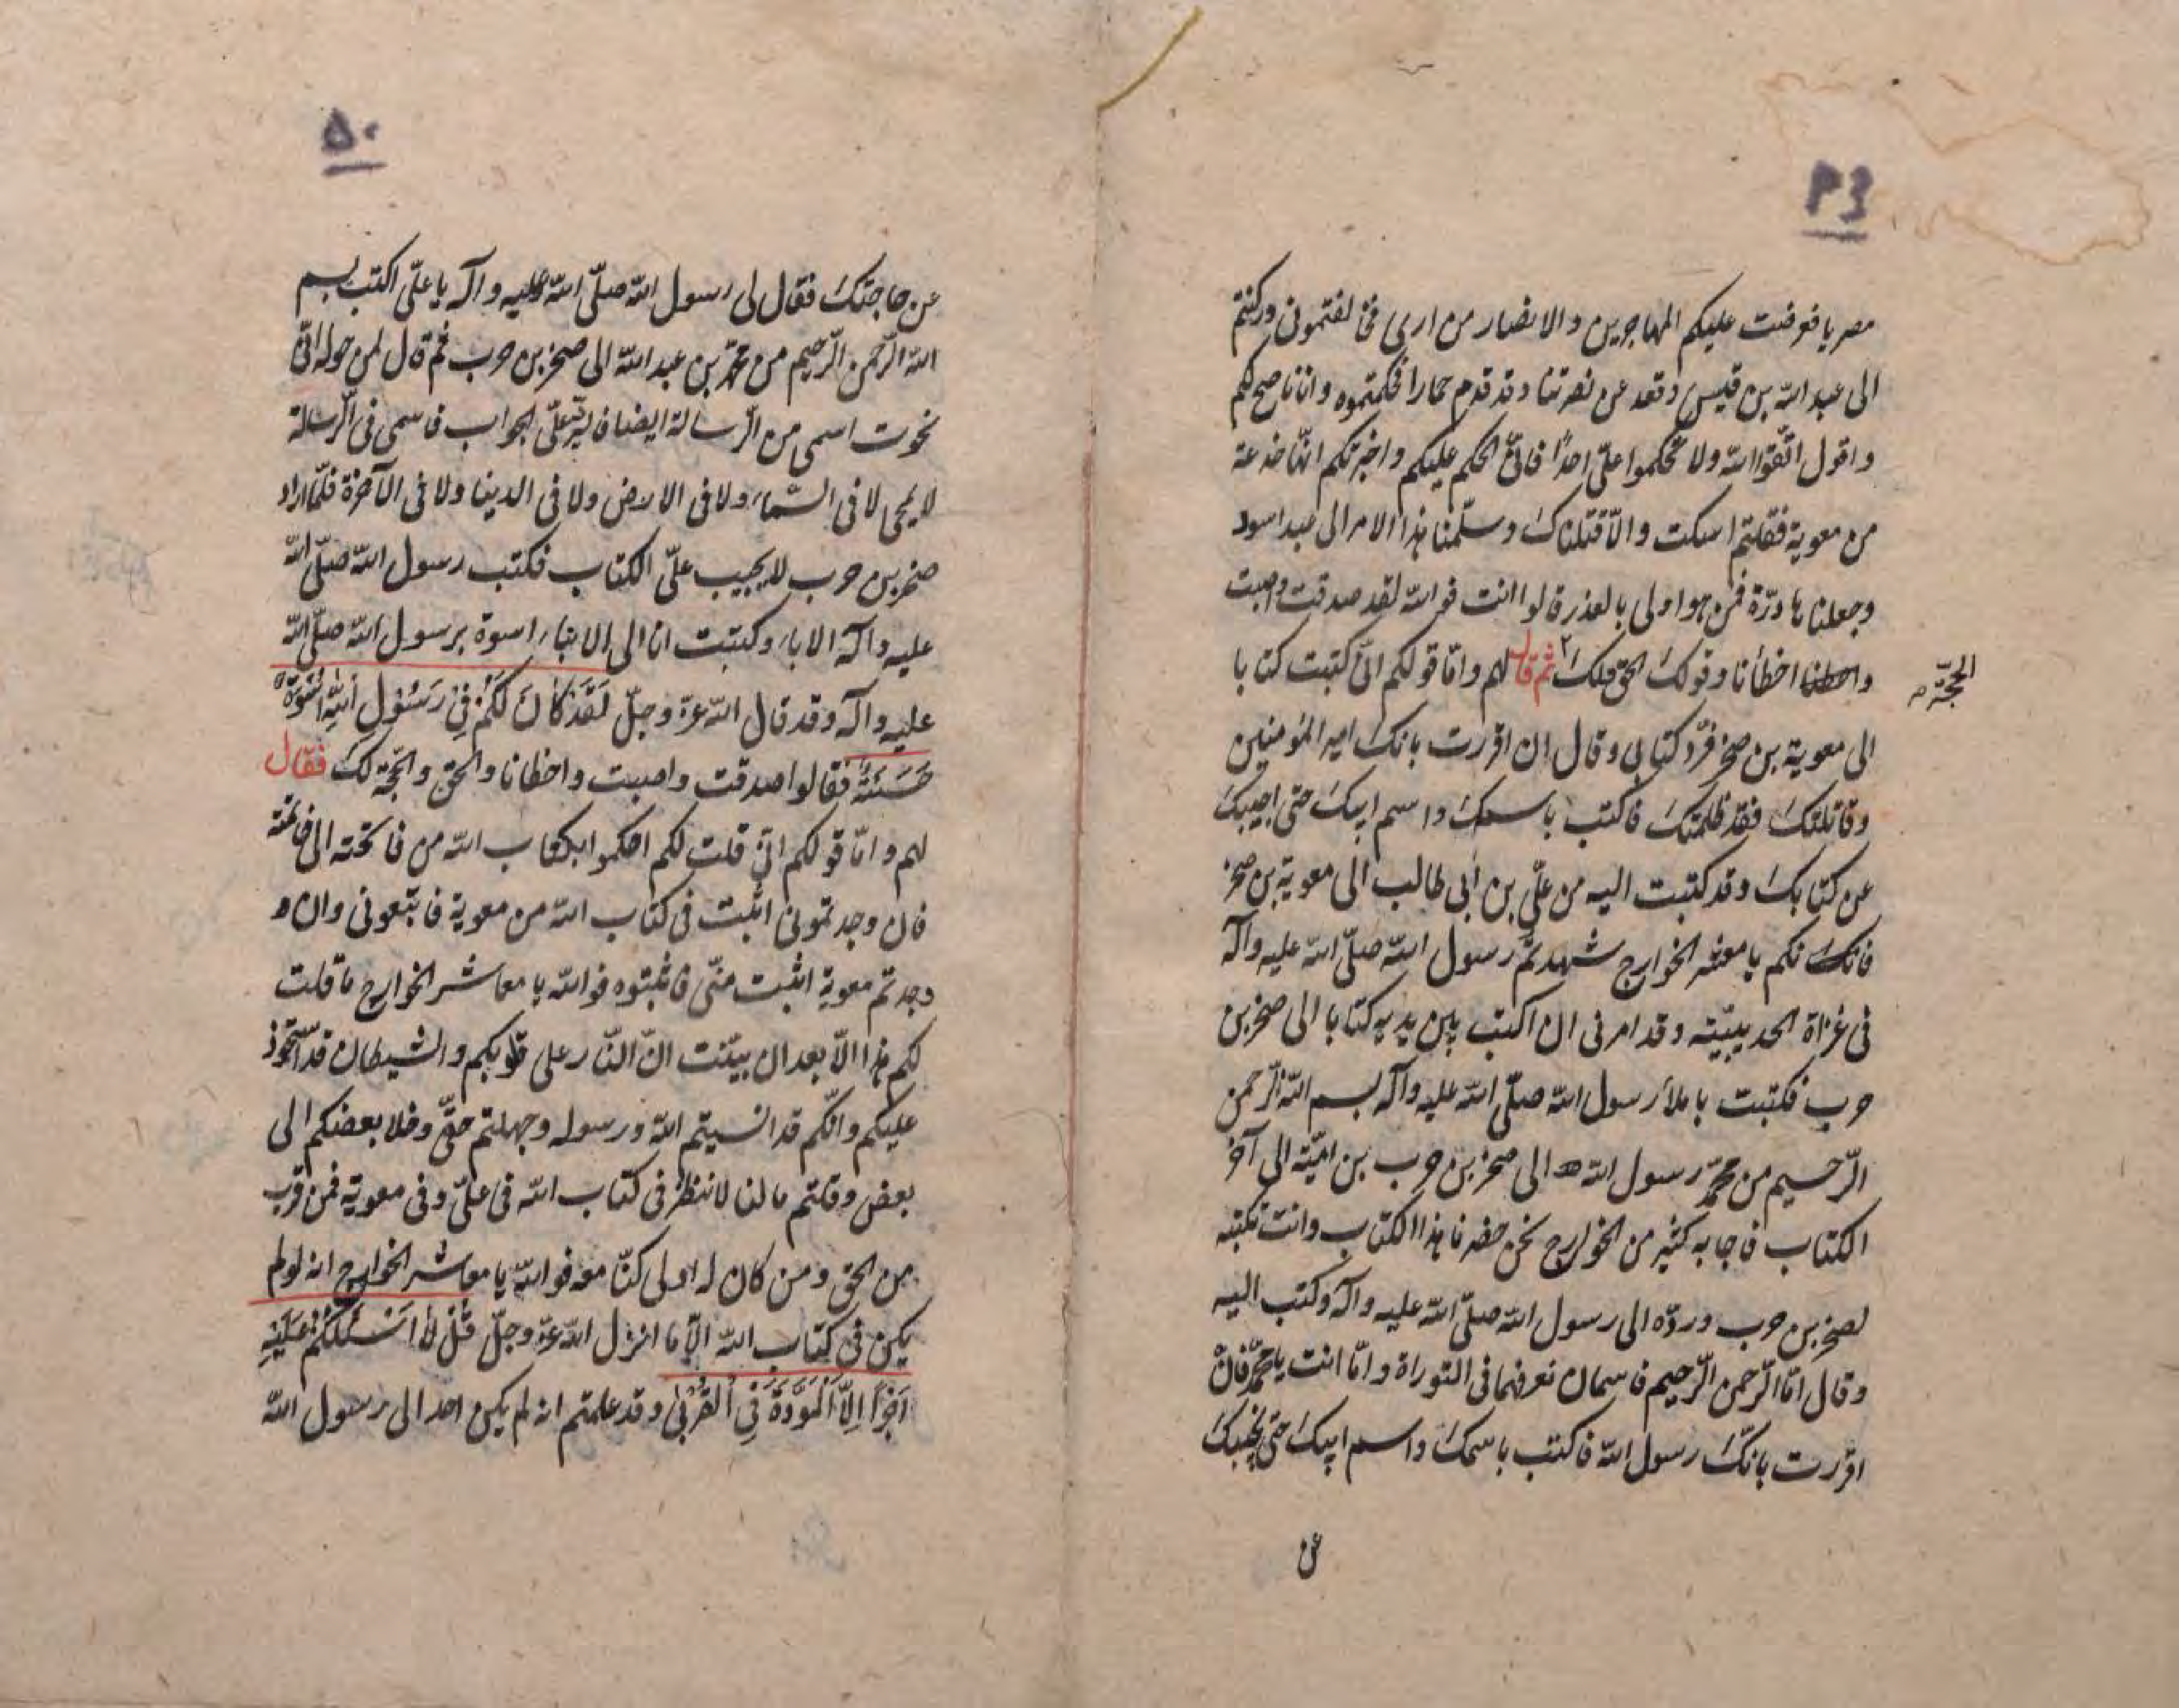 ۴۹
مصريا فعرضت عليكم المهاجرين والانصار من ارى فخالفتمونى وركنتم
الى عبد الله بن قيس وقعد عن نصرتنا وقد قدم حمارا فحكمتموه وانا ناصح لكم
واقول اتّقوا الله ولا تحكموا علىّ احدًا فانّى الحكم عليكم واخبرتكم انّها خدعة
من معوية فقلتم اسكت والّا قتلناك وسلّمنا هذا الامر الى عبد اسود
وجعلناها درّة فمن هو اولى بالعذر قالوا انت فو الله لقد صدقت واصبت
واخطانا وقولك الحق ولك ثم قال لهم وامّا قولكم انّى كتبت كتابا
الحجّة م
الى معوية بن صخر فردّ كتابى وقال ان اقررت بانك امير المؤمنين
وقاتلتك فقد ظلمتك فاكتب باسمك واسم ابيك حتى اجيبك
عن كتابك وقد كتبت اليه من علىّ بن ابى طالب الى معوية بن صخر
فانكم يا معشر الخوارج شهدتم رسول الله صلّى الله عليه وآله
فى غزاة الحديبيّة وقد امرنى ان اكتب بين يديه كتابا الى صخر بن
حرب فكتبت باملاء رسول الله صلّى الله عليه وآله بسم الله الرّحمن
الرّحيم من محمّد رسول الله ص الى صخر بن حرب بن اميّة الى آخر
الكتاب فاجابه كثير من الخوارج نحن حضرنا هذا الكتاب وانت تكتبه
لصخر بن حرب وردّه الى رسول الله صلّى الله عليه وآله وكتب اليه
وقال امّا الرّحمن الرّحيم فاسمان نعرفهما فى التوراة وامّا انت يا محمّد فان
اقررت بانّك رسول الله فاكتب باسمك واسم ابيك حتى نجيبك
عن
۵۰
عن حاجتك فقال لى رسول الله صلّى الله عليه وآله يا علىّ اكتب بسم
الله الرّحمن الرّحيم من محمّد بن عبد الله الى صخر بن حرب ثم قال لمن حوله انّى
نحوت اسمى من الرّسالة ايضا فايّة علىّ الجواب فاسمى فى الرّسالة
لا يمحى لا فى السّماء ولا فى الارض ولا فى الدينا ولا فى الآخرة فلمّا اراد
صخر بن حرب لا يجيب علىّ الكتاب فكتب رسول الله صلّى الله
عليه وآله الاباء وكتبت انا الى الابناء اسوة برسول الله صلّى الله
عليه وآله وقد قال الله عزّ وجلّ لَقَدْ كَانَ لَكُمْ فِى رَسُولِ اللّهِ اُسْوَةٌ
حَسَنَةٌ فقالوا صدقت واصبت واخطانا والحق والحجّة لك فقال
لهم وامّا قولكم انّى قلت لكم احكموا بكتاب الله من فاتحته الى خاتمته
فان وجدتمونى اثبت فى كتاب الله من معوية فاتبّعونى وان
وجدتم معوية اثبت منّى فاثبتوه فو الله يا معاشر الخوارج ما قلت
لكم هذا الّا بعد ان بيّنت انّ النّار على قلوبكم والشيطان قد استحوذ
عليكم وانّكم قد انسيتم الله ورسوله وجهلتم حقّى وخلا بعضكم الى
بعض وقلتم ما لنا لا ننظر فى كتاب الله فى علىّ وفى معوية فمن قرب
من الحق ومن كان له اولى كنّا معه فو الله يا معاشر الخوارج انه لو لم
يكن فى كتاب الله الّا ما انزل الله عزّ وجلّ قُلْ لا اَسْئَلُكُمْ عَلَيْهِ
اَجْرًا اِلَّا الْمَوَدَّةَ فِى الْقُرْبٰى وقد علمتم انه لم يكن احد الى رسول الله